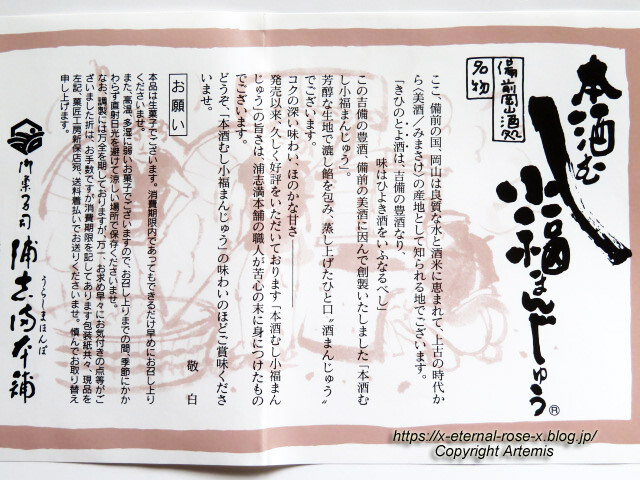 本酒む
小福まんじゅう®
備前岡山酒処
名物
ここ、備前の国、岡山は良質な水と酒米に恵まれて、上古の時代か
ら〈美酒／みまさけ〉の産地として知られる地でございます。
「きひのとよ酒は、吉備の豊酒なり、
味はひよき酒をいふなるべし」
この吉備の豊酒、備前の美酒に因んで創製いたしました「本酒む
し小福まんじゅう」。
芳醇な生地で漉し餡を包み、蒸し上げたひと口〝酒まんじゅう〟
でございます。
コクの深い味わい、ほのかな甘さ――
発売以来、久しく好評をいただいております「本酒むし小福まん
じゅう」の旨さは、浦志満本舗の職人が苦心の末に身につけたもの
でございます。
どうぞ、「本酒むし小福まんじゅう」の味わいのほどご賞味くださ
いませ。
敬白
お願い
本品は生菓子でございます。消費期限内であってもできるだけ早めにお召し上り
くださいませ。
また、高温、多湿に弱いお菓子でございますので、お召し上りまでの間、季節にかか
わらず直射日光を避けて涼しい場所で保存くださいませ。
なお、調製には万全を期しておりますが、万一、お求め早々にお気付きの点等がご
ざいました折は、お手数ですが消費期限を記してあります包装紙共々、現品を
左記、菓匠工房新保店宛、送料着払いでお送りくださいませ。慎んでお取り替え
申し上げます。
御菓子司
浦志満本舗
うらしまほんぽ
https://x-eternal-rose-x.blog.jp/
Copyright Artemis